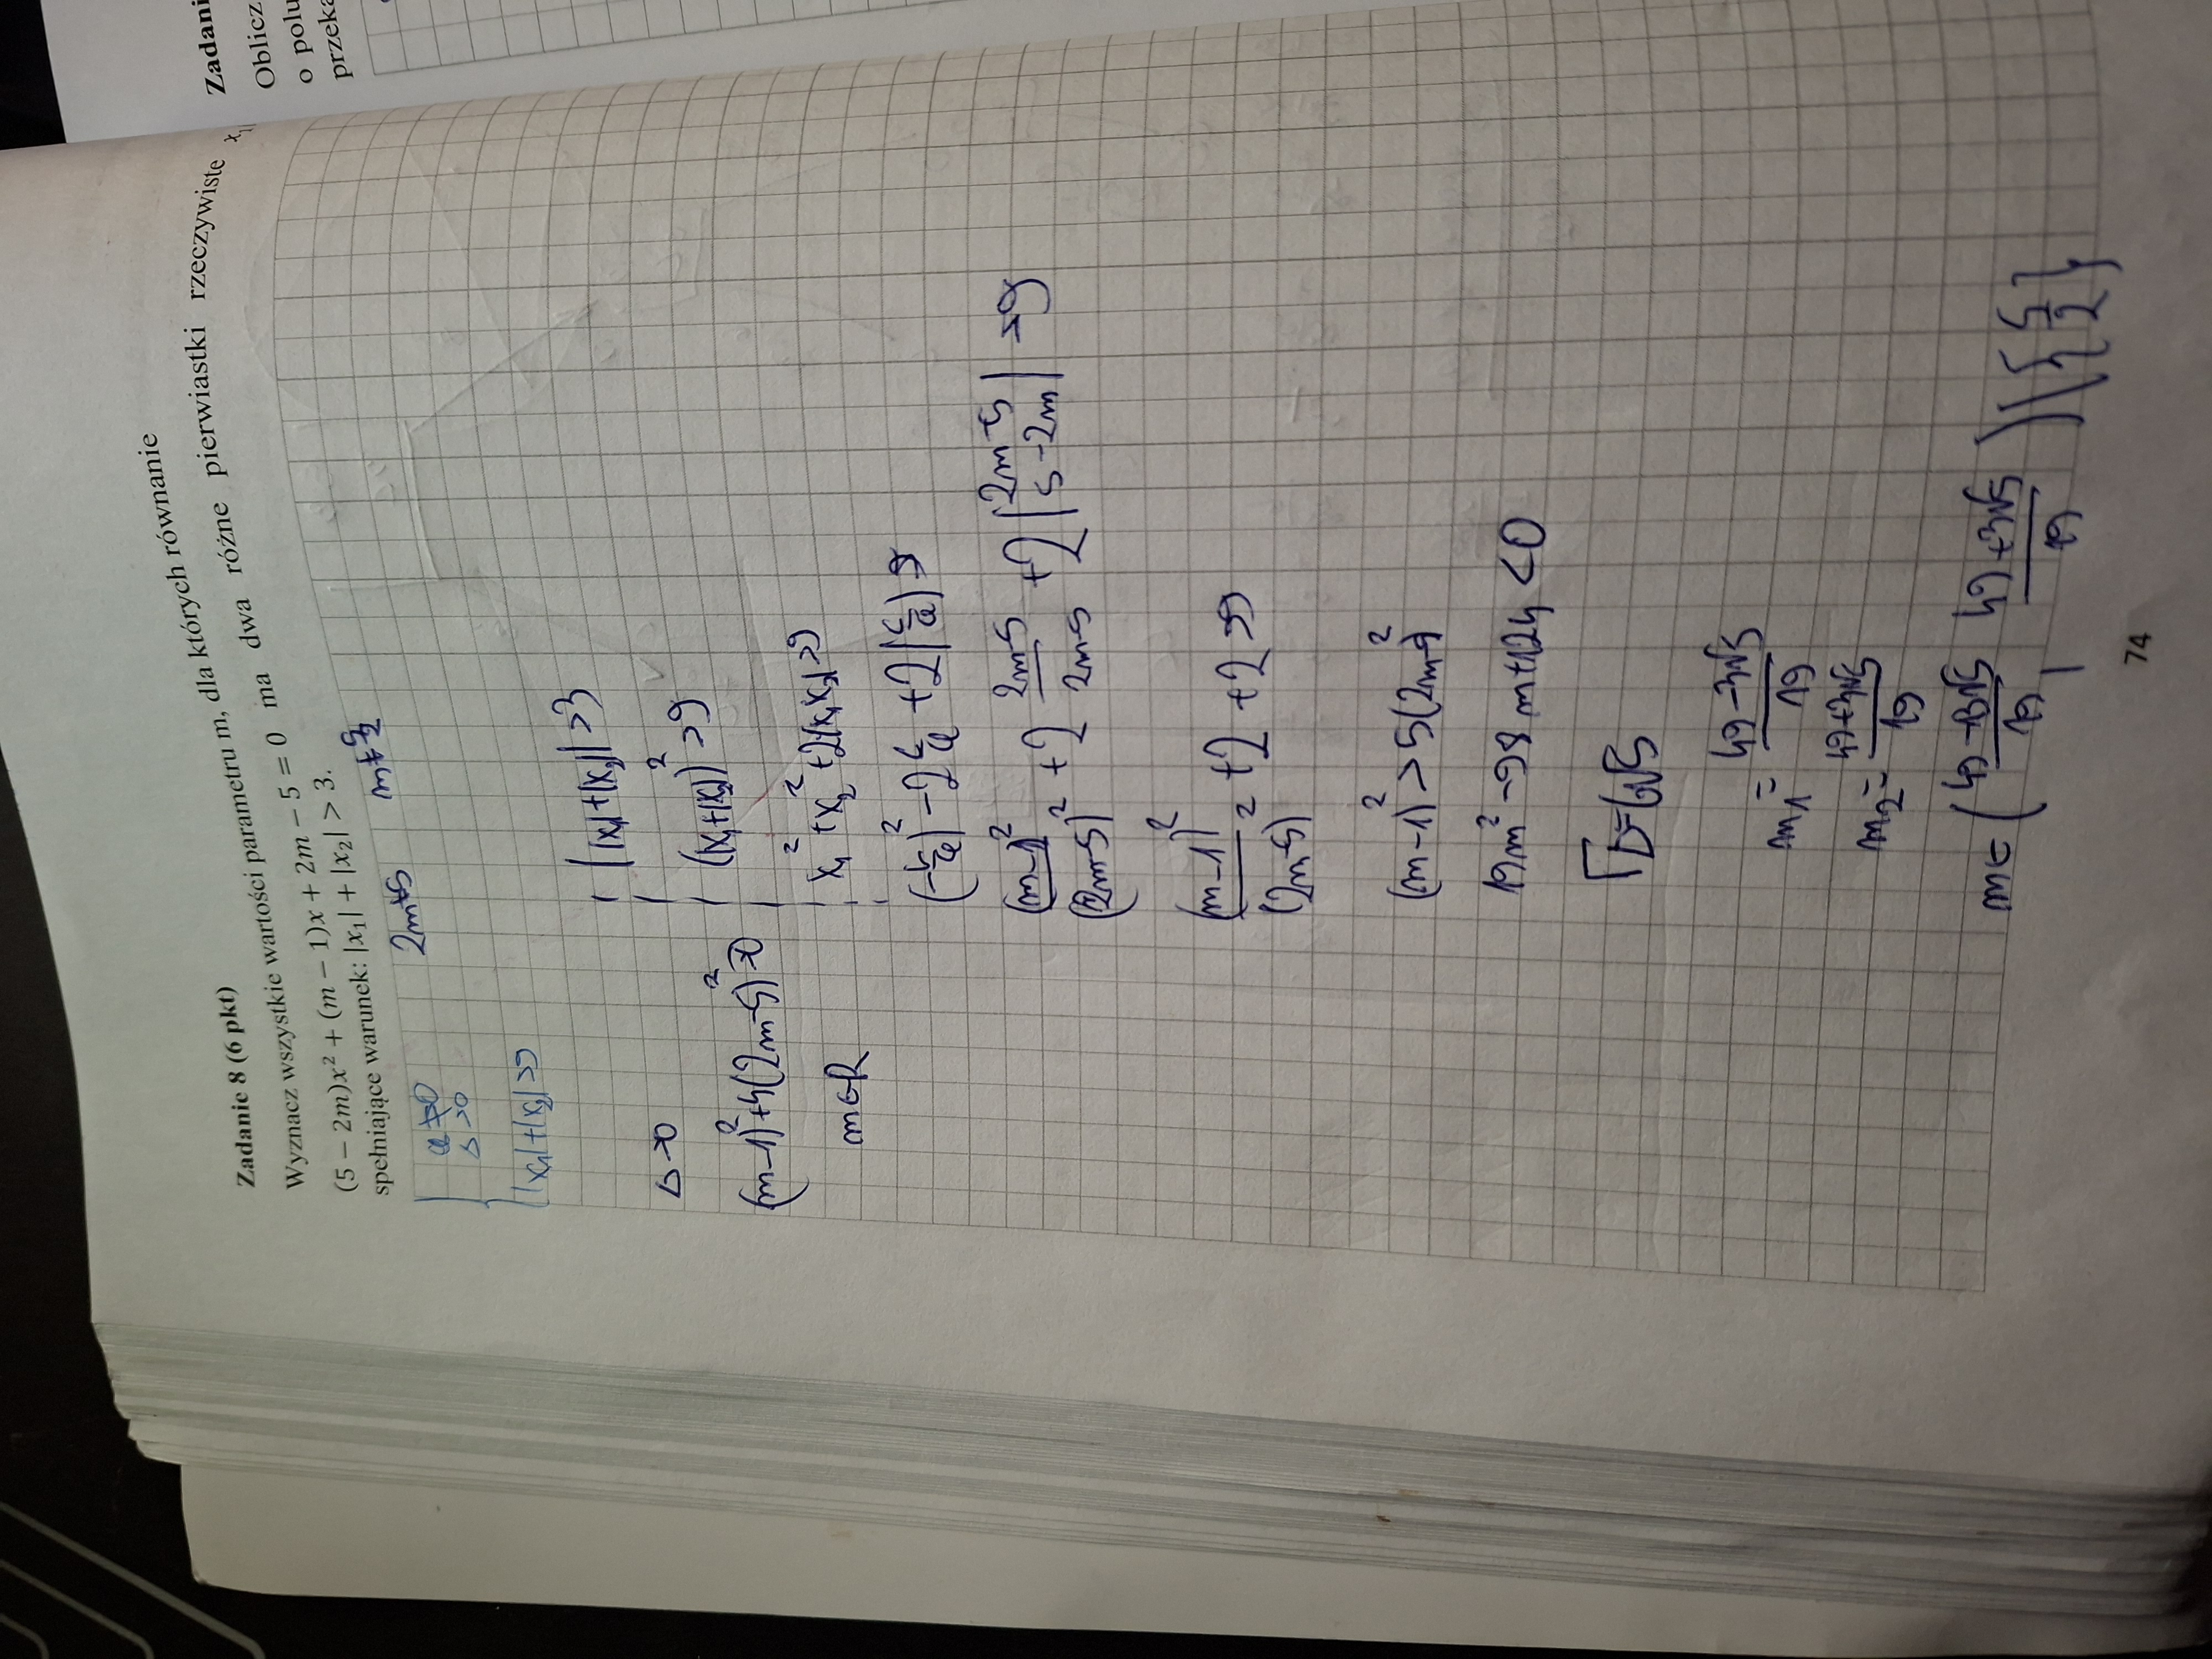 Zadanie 8 (6 pkt)
Wyznacz wszystkie wartości parametru m, dla których równanie
(5 − 2m)x² + (m − 1)x + 2m − 5 = 0 ma dwa różne pierwiastki rzeczywiste x₁
spełniające warunek: |x₁| + |x₂| > 3.
a ≠ 0
Δ > 0
|x₁|+|x₂| > 9
2m≠5
m≠5/2
Δ > 0
(m−1)²+4(2m−5)²>0
m∈R
|x₁|+|x₂| > 3
(|x₁|+|x₂|)² > 9
x₁²+x₂²+2|x₁x₂|>9
(−b/a)²−2c/a+2|c/a|>9
(m−1)²/(2m−5)²+2 2m−5/2m−5+2|2m−5/5−2m|>9
(m−1)²/(2m−5)²+2+2>9
(m−1)²>5(2m−5)²
19m²−98m+124<0
√Δ=6√5
m₁=49−3√5/19
m₂=49+3√5/19
m∈(49−3√5/19, 49+3√5/19)\{5/2}
74
Zadani
Oblicz
o polu
przeka